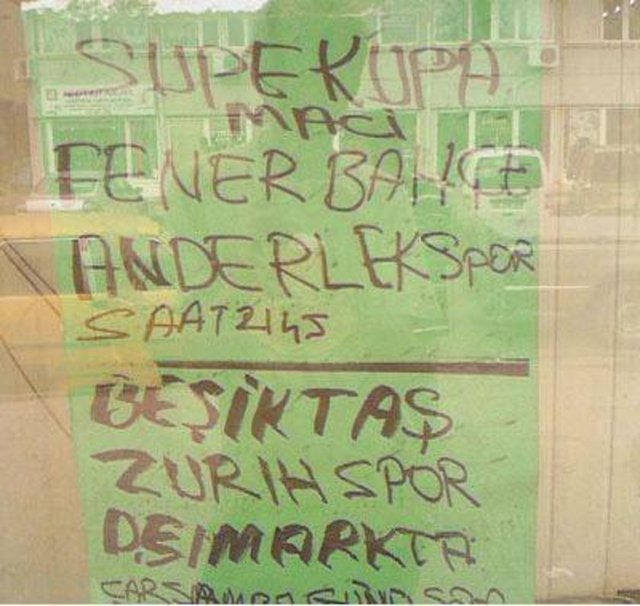 SUPEKUPA
MACI
FENER BAHÇE
ANDERLEKSPOR
SAAT 21 45
BEŞİKTAŞ
ZURIH SPOR
DEŞIMARKTA
ÇARŞAMBA GÜNÜ